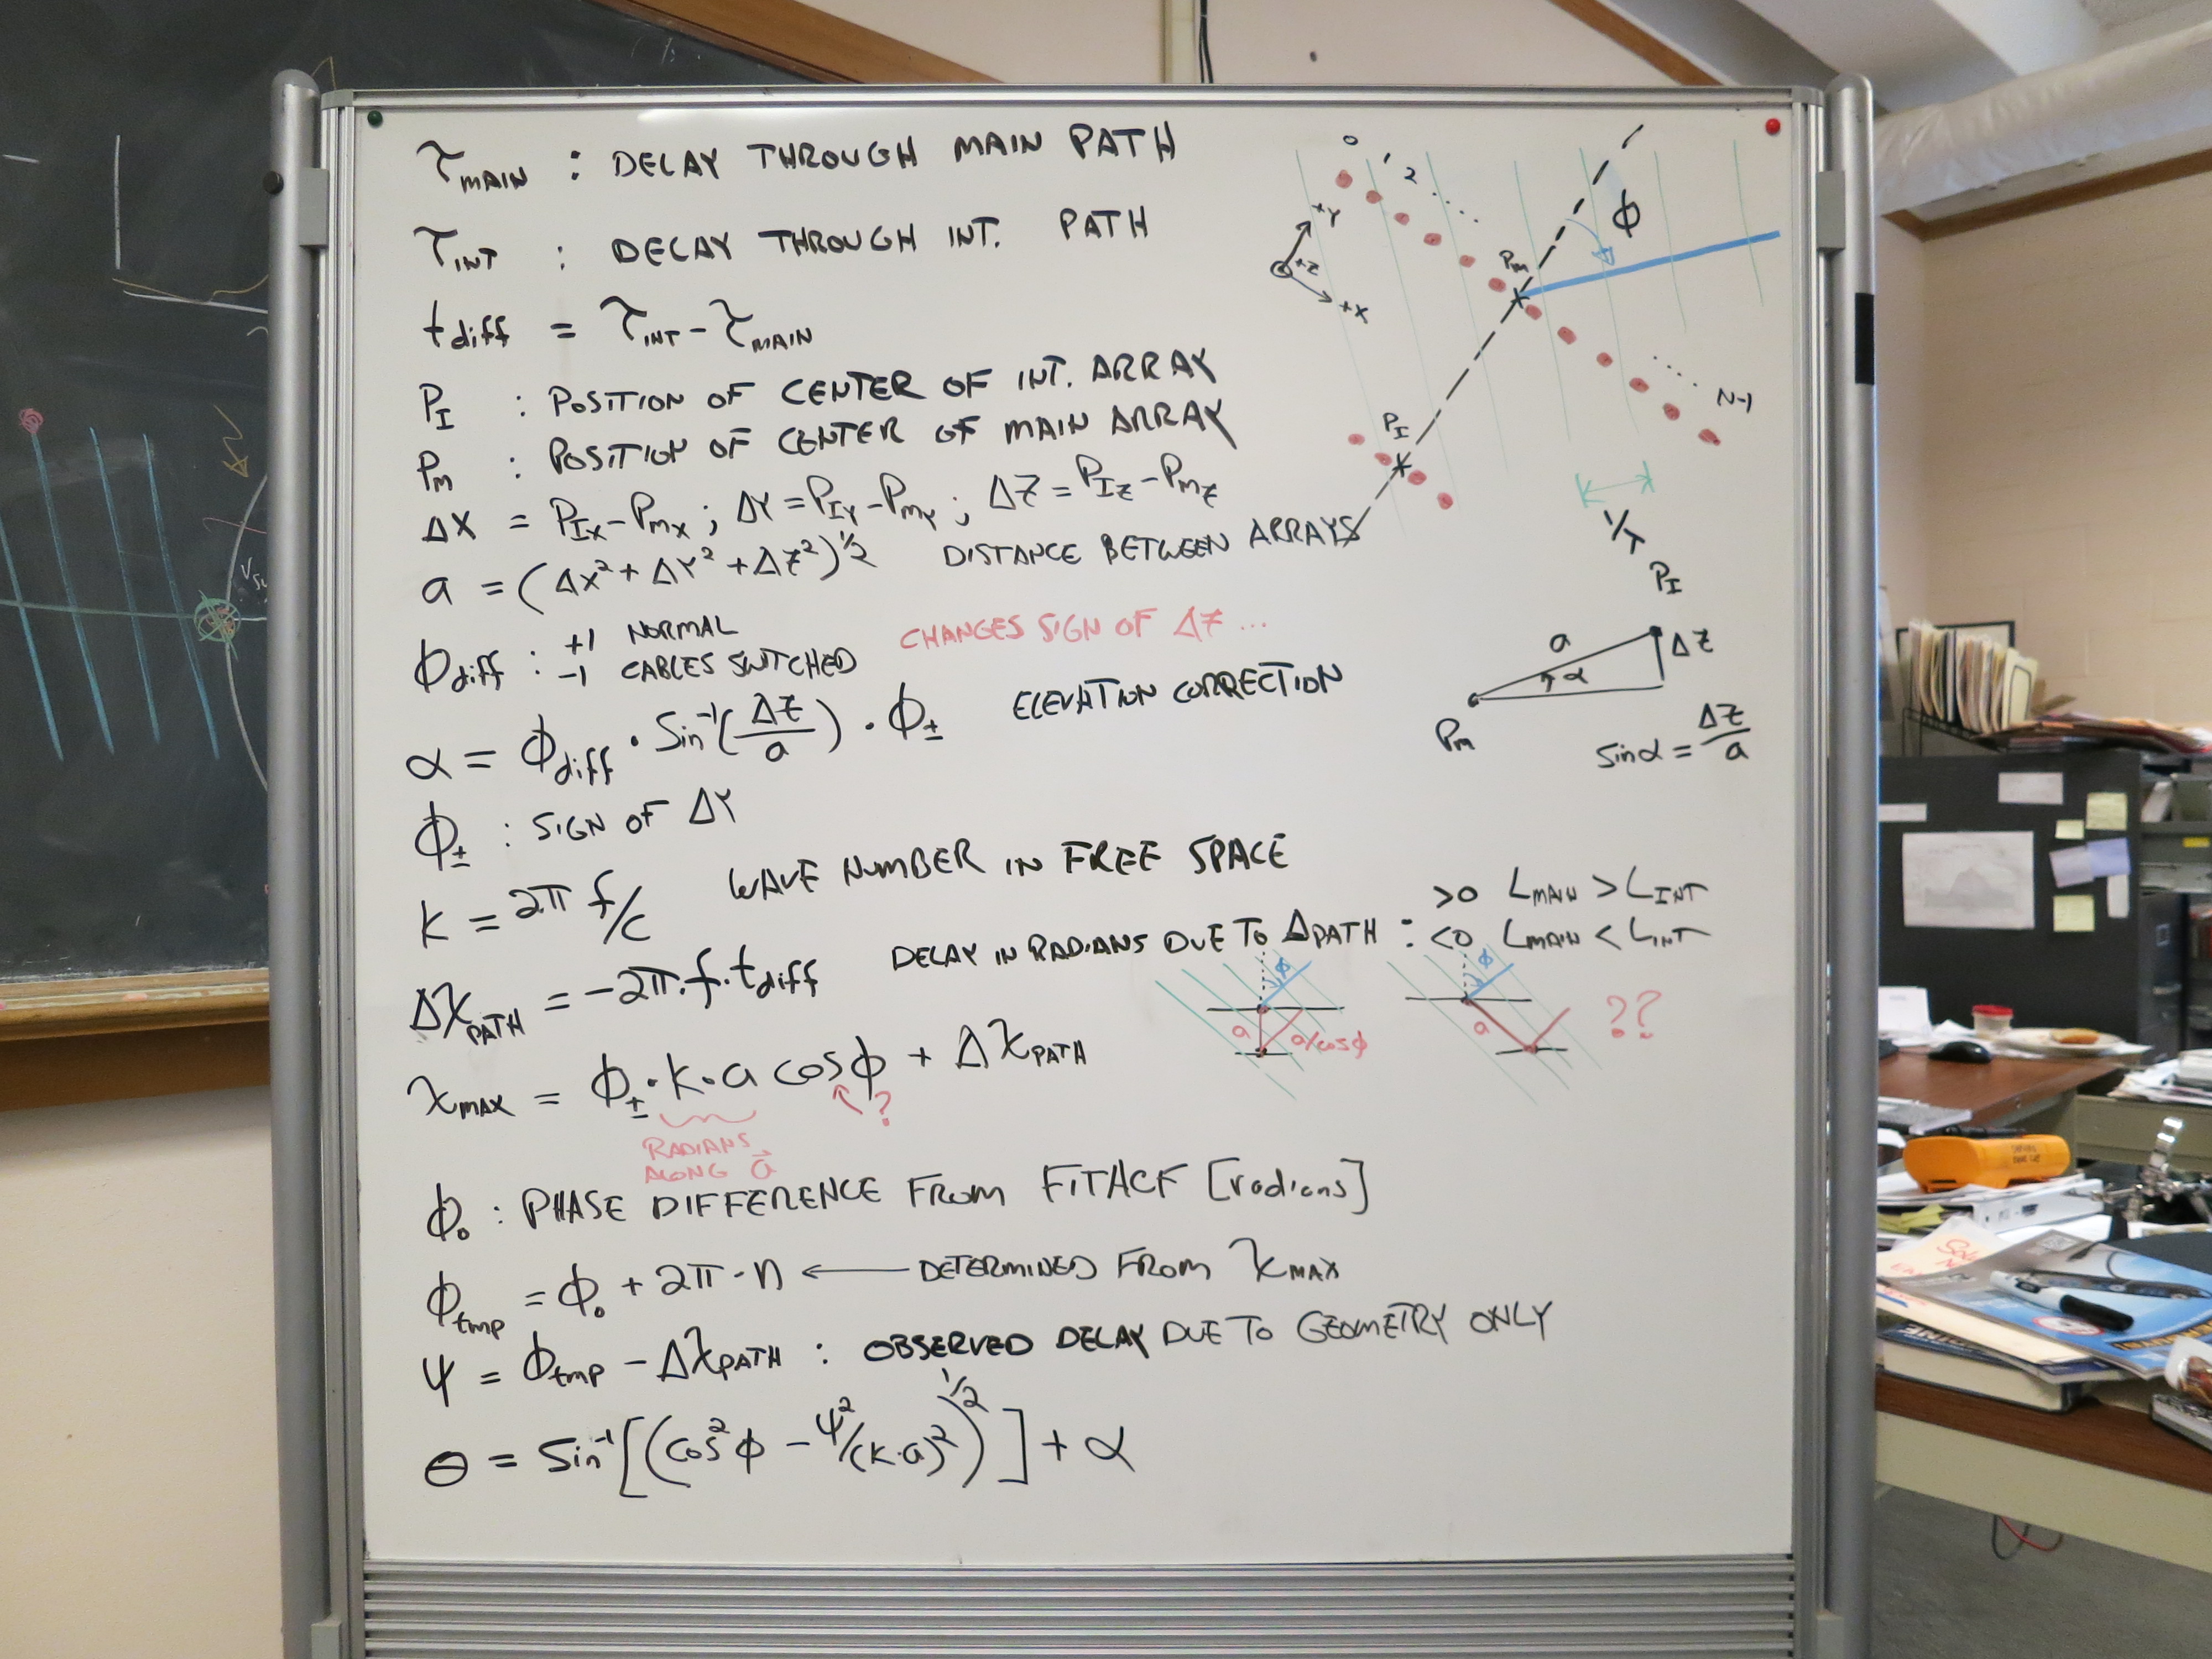 τMAIN : DELAY THROUGH MAIN PATH
τINT : DELAY THROUGH INT. PATH
tdiff = τINT - τMAIN
PI : POSITION OF CENTER OF INT. ARRAY
Pm : POSITION OF CENTER OF MAIN ARRAY
ΔX = PIX - PmX ; ΔY = PIY - PmY ; ΔZ = PIZ - PmZ
a = (ΔX² + ΔY² + ΔZ²)^1/2 DISTANCE BETWEEN ARRAYS
ϕdiff : +1 NORMAL
-1 CABLES SWITCHED
CHANGES SIGN OF ΔZ ...
α = ϕdiff · Sin⁻¹(ΔZ/a) · ϕ± ELEVATION CORRECTION
ϕ± : SIGN OF ΔY
k = 2π f/c WAVE NUMBER IN FREE SPACE
ΔχPATH = -2π·f·tdiff DELAY IN RADIANS DUE TO ΔPATH : >0 LMAIN > LINT
<0 LMAIN < LINT
χMAX = ϕ± · k · a cosϕ + ΔχPATH
?
RADIANS
ALONG a⃗
ϕ₀ : PHASE DIFFERENCE FROM FITACF [radians]
ϕtmp = ϕ₀ + 2π · n ← DETERMINED FROM χMAX
ψ = ϕtmp - ΔχPATH : OBSERVED DELAY DUE TO GEOMETRY ONLY
θ = Sin⁻¹[(cos²ϕ - ψ²/(k·a)²)^1/2] + α
0 1 2 ....
+Y
+Z
+X
Pm
ϕ
N-1
PI
1/T
PI
a
α
ΔZ
Pm
sinα = ΔZ/a
ϕ
a
a/cosϕ
ϕ
a
??